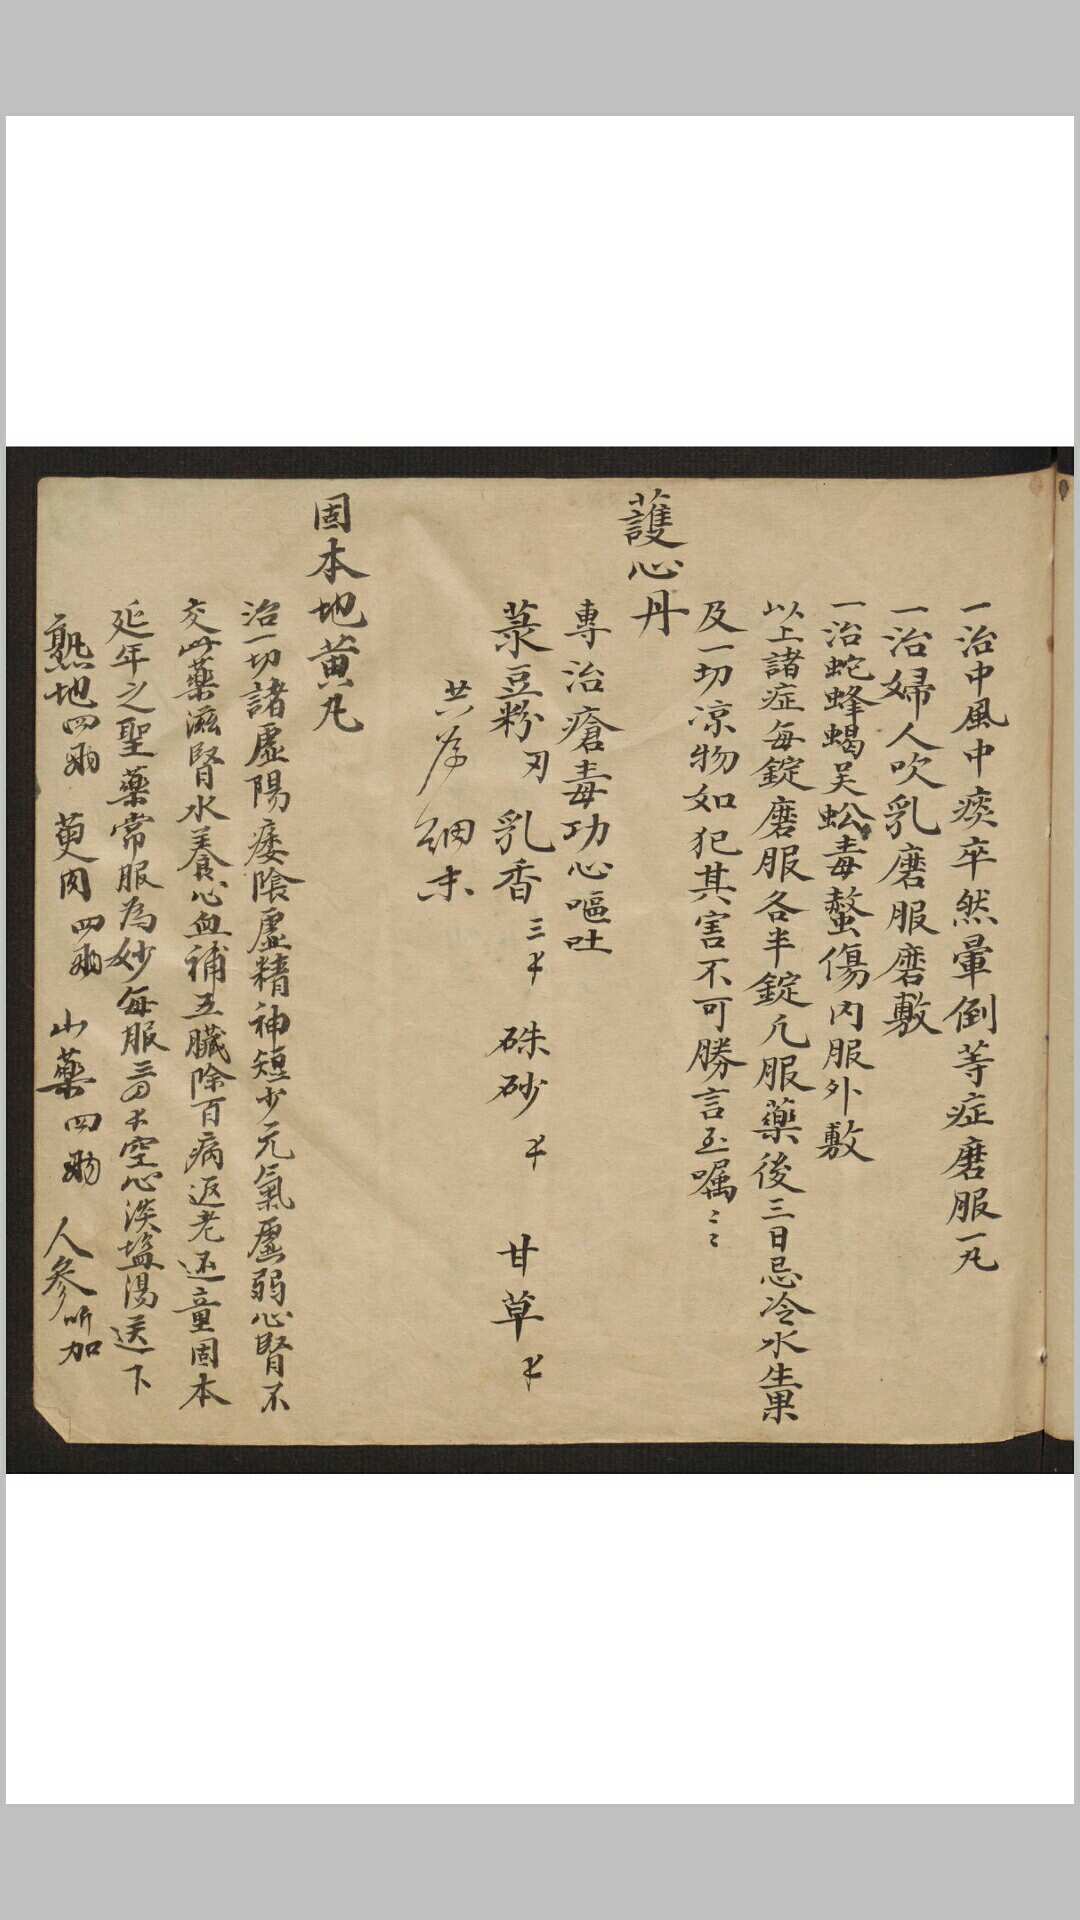 一治中風中痰卒然暈倒等症磨服一丸
一治婦人吹乳磨服磨敷
一治蛇蜂蝎吴蚣毒螫傷内服外敷
以上諸症每錠磨服各半錠凢服藥後三日忌冷水生果
及一切凉物如犯其害不可勝言至嘱〻〻
護心丹
專治瘡毒功心嘔吐
菉豆粉 乳香三 硃砂 甘草
共為細末
固本地黄丸
治一切諸虛陽痿陰虛精神短少元氣虛弱心腎不
交此藥滋腎水養心血補五臟除百病返老还童固本
延年之聖藥常服為妙每服三四空心淡塩湯送下
熟地四兩 萸肉四兩 山藥四兩 人參听加